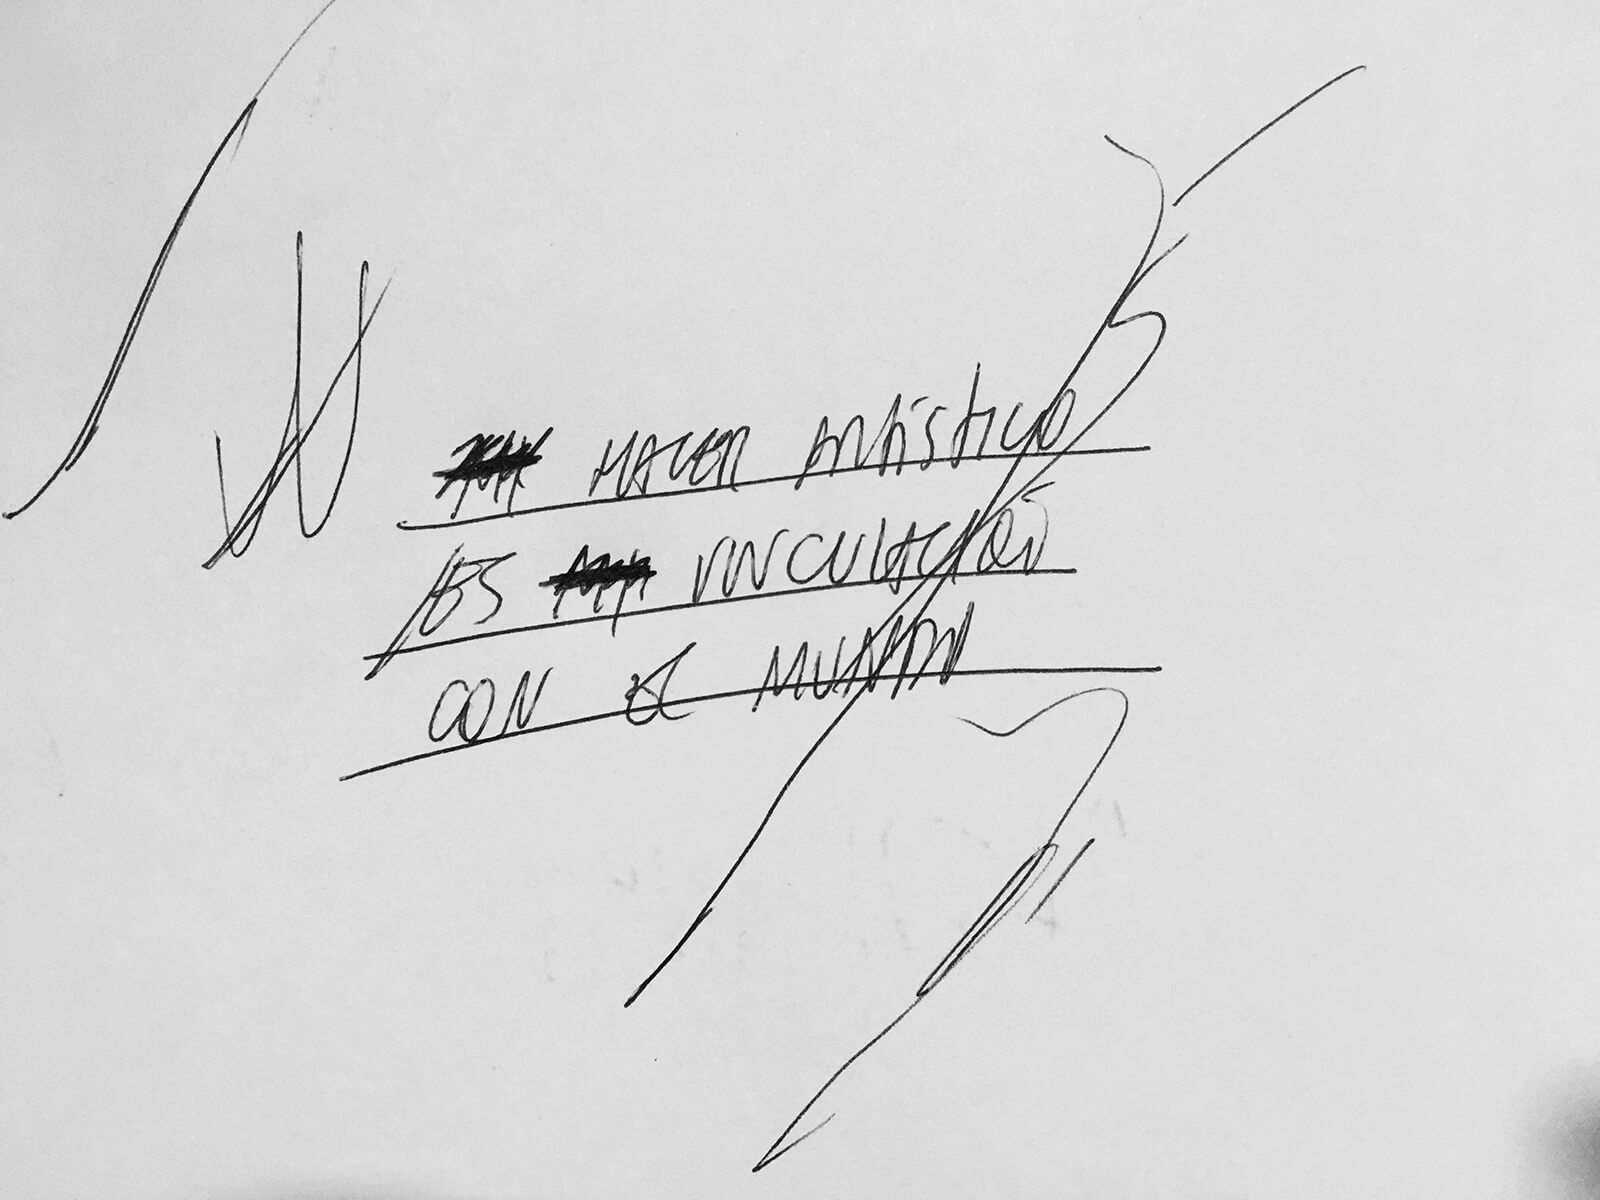 HACER ARTÍSTICO
ES VINCULACIÓN
CON EL MUNDO